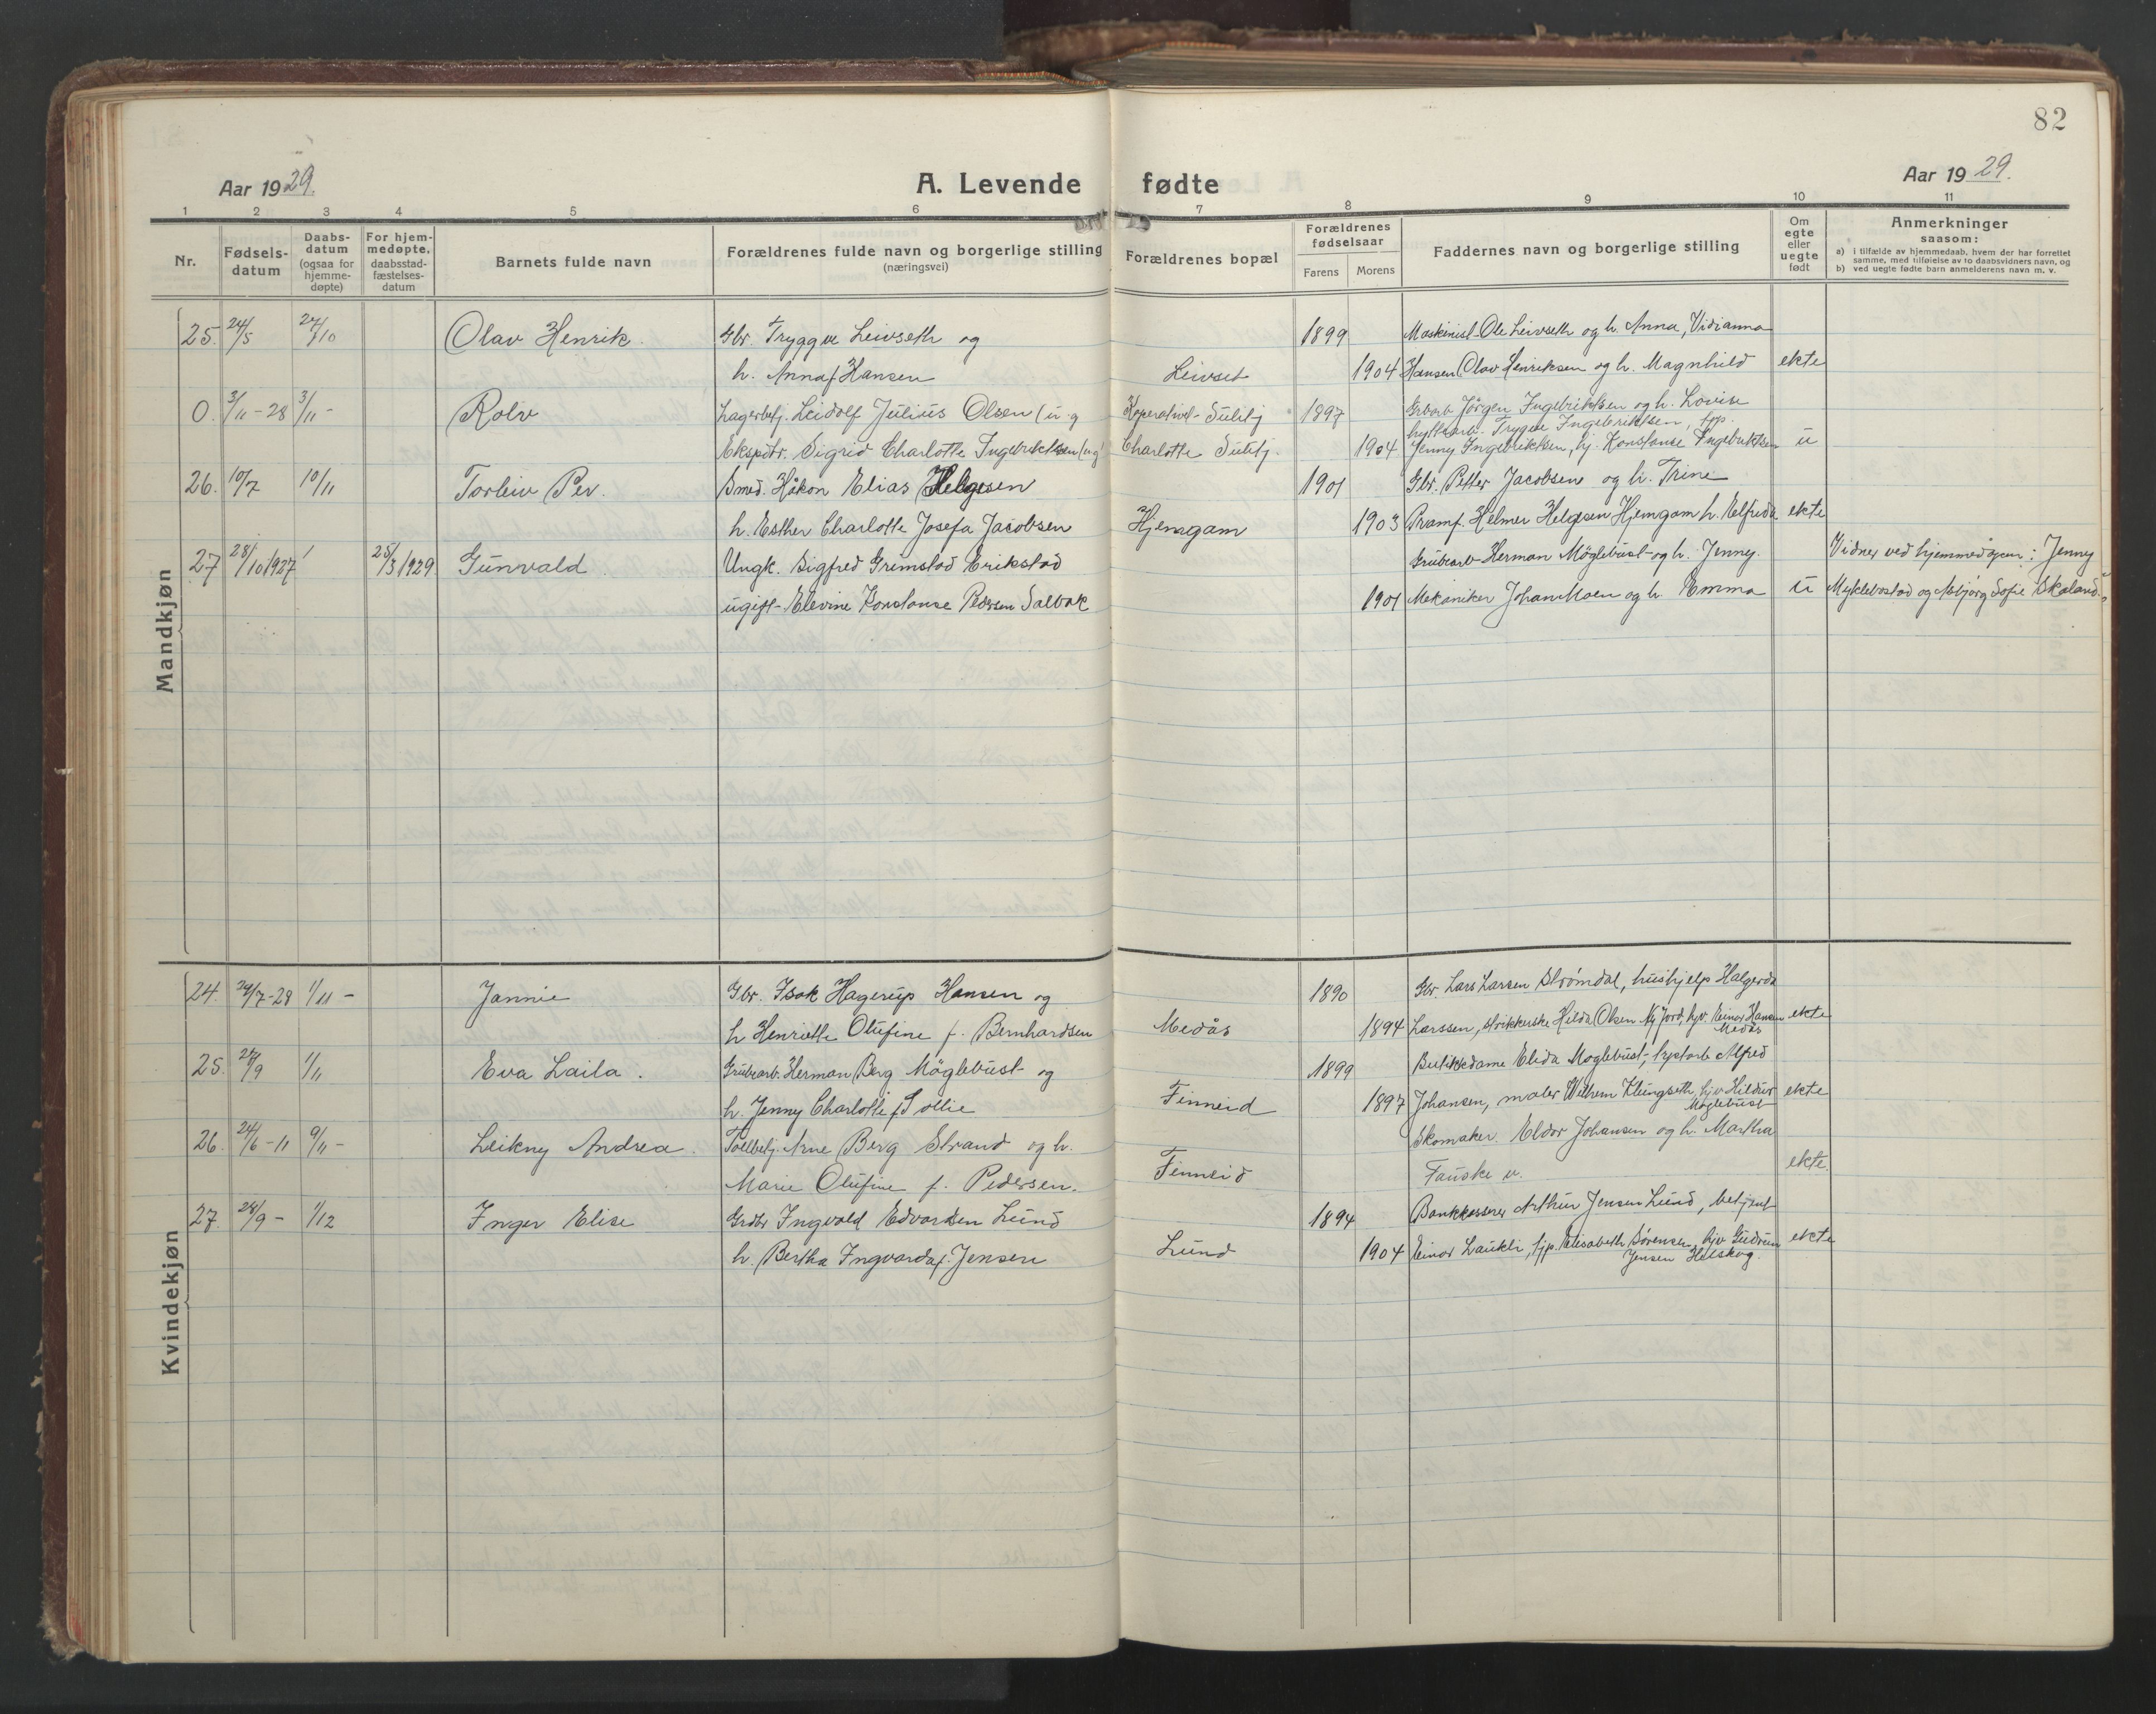 82
Aar 1929.
A. Levende fødte
Aar 1929.
1 2 3 4 5 6 7 8 9 10 11
Nr.
Fødsels-
datum
Daabs-
datum
(ogsaa for
hjemme-
døpte)
For hjem-
medøpte,
daabsstad-
fæstelses-
datum
Barnets fulde navn
Forældrenes fulde navn og borgerlige stilling
(næringsvei)
Forældrenes bopæl
Forældrenes
fødselsaar
Farens Morens
Faddernes navn og borgerlige stilling
Om
egte
eller
uegte
født
Anmerkninger
saasom:
a) i tilfælde av hjemmedaab, hvem der har forrettet
samme, med tilføielse av to daabsvidners navn, og
b) ved uegte fødte barn anmelderens navn m. v.
Mandkjøn
25. 24/5 27/10 Olav Henrik. Gbr. Trygve Leivseth og 1899 Maskinist Ole Leivseth og h. Anna, Vidianna
h. Anna f. Hansen Leivset 1904 Hansen, Olav Henriksen og h. Magnhild ekte
0. 3/11-28 3/11- Rolv Lagerbetj. Leidolf Julius Olsen (u.g Koperativet Sulitj 1897 Grbarb. Jörgen Ingebriktsen og h. Lovise
hyttearb. Trygve Ingebriktsen, tjp.
Ekspdtr. Sigrid Charlotte Ingebriktsen (ug) Charlotte Sulitj. 1904 Jenny Ingebriktsen, hj. Konstanse Ingebriktsen u
26. 10/7 10/11 Torleiv Per. Smed. Håkon Elias Helgesen 1901 Gbr. Petter Jacobsen og h. Trine
h. Esther Charlotte Josefa Jacobsen Hjemgam 1903 Pramf. Helmer Helgesen Hjemgam h. Alfreda ekte
27 28/10 1927 25/3 1929 Gunvald. Ungk. Sigfred Grimstad Erikstad Grubearb Herman Möglebust og h. Jenny. Vidner ved hjemmedåpen: Jenny
ugift Elevine Konstanse Pedersen Salbak 1901 Mekaniker Johan Moen og h. Emma u Myklebostad og Asbjörg Sofie Skaland.
Kvindekjøn
24. 29/7-28 1/11- Jannie Gbr. Isak Hagerup Hansen og 1890 Gbr. Lars Larsen Strømdal, hushjelp Halgerda
h Henriette Olufine f. Bernhardsen Medås 1894 Larssen, strikkerske Hilda Olsen Nyjord, hjv. Einar Hansen ekte
Medås
25. 27/9 1/11 Eva Laila. Grubearb. Herman Berg Möglebust og 1899 Butikkdame Elida Moglebust, Alfred
h. Jenny Charlotte f. Sollie Finneid 1897 Johansen, maler Wilhem Klungseth, hjv Hildur ekte
Möglebust
26. 24/6-11 9/11- Leikny Andrea. Tollbetj. Arne Berg Strand og h. Skomaker. Eldor Johansen og h. Martha
Marie Olufine f. Pedersen. Finneid Fauske v. ekte.
27. 28/9- 1/12 Inger Elise Grdbr Ingvald Edvardsen Lund 1894 Bankkasserer Arthur Jensen Lund, betjent
h. Bertha Ingvarda f. Jensen Lund 1904 Einar Laukli, tjp. Elisabeth Sörensen, hjv Gudrun ekte
Jensen Helskog.